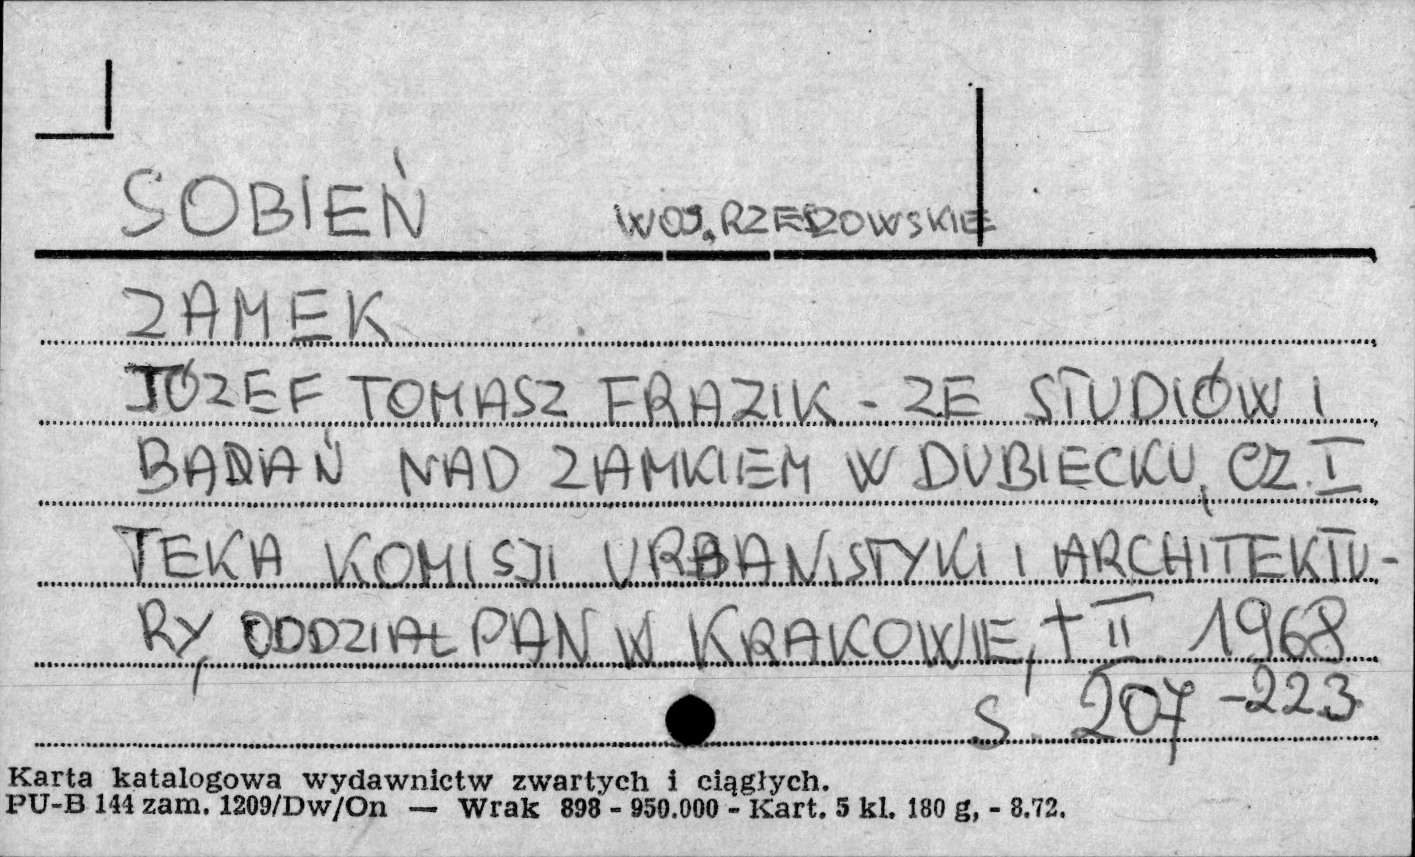 SOBIEŃ WOJ. RZESZOWSKIE
ZAMEK
JÓZEF TOMASZ FRAZIK - ZE STUDIÓW I
BADAŃ NAD ZAMKIEM W DUBIECKU, CZ. I
TEKA KOMISJI URBANISTYKI I ARCHITEKTU-
RY, ODDZIAŁ PAN W KRAKOWIE, t II 1968
S. 207-223
Karta katalogowa wydawnictw zwartych i ciągłych.
PU-B 144 zam. 1209/Dw/On — Wrak 898 - 950.000 - Kart. 5 kl. 180 g, - 8.72.